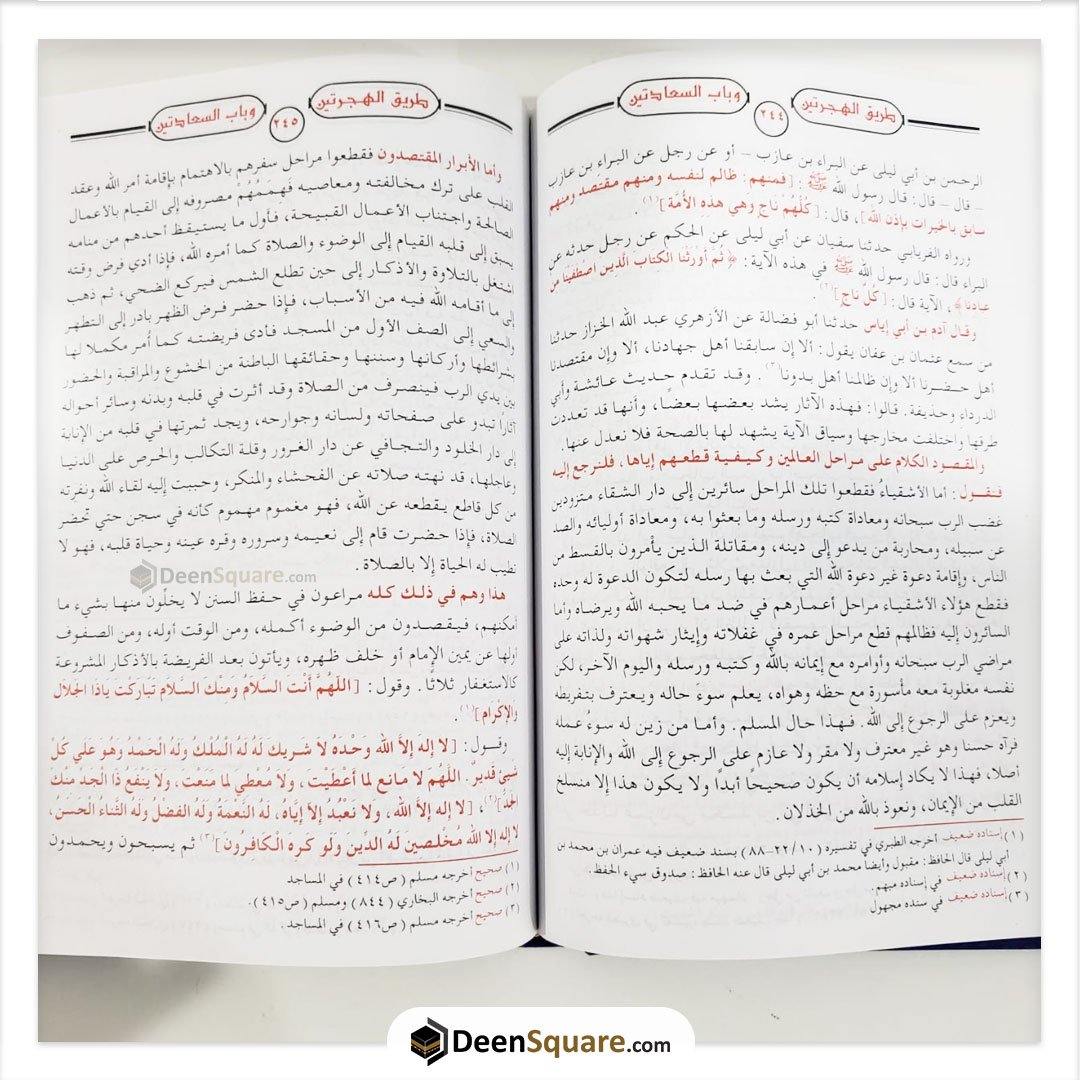 طريق الهجرتين
٢٤٤
وباب السعادتين
الرحمن بن أبي ليلى عن البراء بن عازب – أو عن رجل عن البراء بن عازب
– قال – قال: قال رسول الله ﷺ: [فمنهم: ظالم لنفسه ومنهم مقتصد ومنهم
سابق بالخيرات بإذن الله]، قال: [كُلُّهُمْ نَاجٍ وهي هذِهِ الأُمَّة](١).
ورواه الفريابي حدثنا سفيان عن أبي ليلى عن الحكم عن رجل حدثه عن
البراء قال: قال رسول الله ﷺ في هذه الآية: ﴿ثُمَّ أَوْرَثْنَا الكِتَابَ الَّذينَ اصْطَفَيْنَا من
عبادنا﴾، الآية قال: [كُلٌّ نَاجٍ](٢).
وقال آدم بن أبي إياس حدثنا أبو فضالة عن الأزهري عبد الله الخزاز حدثنا
من سمع عثمان بن عفان يقول: ألا إن سابقنا أهل جهادنا، ألا وإن مقتصدنا
أهل حضرنا ألا وإن ظالمنا أهل بدونا(٣). وقد تقدم حديث عائشة وأبي
الدرداء وحذيفة. قالوا: فهذه الآثار يشد بعضها بعضًا، وأنها قد تعددت
طرقها واختلفت مخارجها وسياق الآية يشهد لها بالصحة فلا نعدل عنها.
والمقصود الكلام على مراحل العالمين وكيفية قطعهم إياها، فلنرجع إليه
فنقول: أما الأشقياءُ فقطعوا تلك المراحل سائرين إلى دار الشقاء متزودين
غضب الرب سبحانه ومعاداة كتبه ورسله وما بعثوا به، ومعاداة أوليائه والصد
عن سبيله، ومحاربة من يدعو إلى دينه، ومقاتلة الذين يأمرون بالقسط من
الناس، وإقامة دعوة غير دعوة الله التي بعث بها رسله لتكون الدعوة له وحده
فقطع هؤلاء الأشقياء مراحل أعمارهم في ضد ما يحبه الله ويرضاه وأما
السائرون إليه فظالمهم قطع مراحل عمره في غفلاته وإيثار شهواته ولذاته على
مراضي الرب سبحانه وأوامره مع إيمانه بالله وكتبه ورسله واليوم الآخر، لكن
نفسه مغلوبة معه مأسورة مع حظه وهواه، يعلم سوءَ حاله ويعترف بتفريطه
ويعزم على الرجوع إلى الله. فهذا حال المسلم. وأما من زين له سوءُ عمله
فرآه حسنا وهو غير معترف ولا مقر ولا عازم على الرجوع إلى الله والإنابة إليه
أصلا، فهذا لا يكاد إسلامه أن يكون صحيحًا أبدًا ولا يكون هذا إلا منسلخ
القلب من الإيمان، ونعوذ بالله من الخذلان.
(١) إسناده ضعيف أخرجه الطبري في تفسيره (١٠/٢٢–٨٨) بسند ضعيف فيه عمران بن محمد بن
أبي ليلى قال الحافظ: مقبول وأيضاً محمد بن أبي ليلى قال عنه الحافظ: صدوق سيء الحفظ.
(٢) إسناده ضعيف في إسناده مبهم.
(٣) إسناده ضعيف في سنده مجهول
طريق الهجرتين
٢٤٥
وباب السعادتين
وأما الأبرار المقتصدون فقطعوا مراحل سفرهم بالاهتمام بإقامة أمر الله وعقد
القلب على ترك مخالفته ومعاصيه فَهِمَمُهُمْ مصروفه إلى القيام بالأعمال
الصالحة واجتناب الأعمال القبيحة، فأول ما يستيقظ أحدهم من منامه
يسبق إلى قلبه القيام إلى الوضوء والصلاة كما أمره الله، فإذا أدي فرض وقته
اشتغل بالتلاوة والأذكار إلى حين تطلع الشمس فيركع الضحي، ثم ذهب
إلى ما أقامه الله فيه من الأسباب، فإذا حضر فرض الظهر بادر إلى التطهر
والسعي إلى الصف الأول من المسجد فأدى فريضته كما أُمر مكملا لها
بشرائطها وأركانها وسننها وحقائقها الباطنة من الخشوع والمراقبة والحضور
بين يدي الرب فينصرف من الصلاة وقد أثرت في قلبه وبدنه وسائر أحواله
آثارًا تبدو على صفحاته ولسانه وجوارحه، ويجد ثمرتها في قلبه من الإنابة
إلى دار الخلود والتجافي عن دار الغرور وقلة التكالب والحرص على الدنيا
وعاجلها، قد نهته صلاته عن الفحشاء والمنكر، وحببت إليه لقاء الله ونفرته
من كل قاطع يقطعه عن الله، فهو مغموم مهموم كأنه في سجن حتي تحضر
الصلاة، فإذا حضرت قام إلى نعيمه وسروره وقره عينه وحياة قلبه، فهو لا
تطيب له الحياة إلا بالصلاة.
هذا وهم في ذلك كله مراعون في حفظ السنن لا يخلّون منها بشيء ما
أمكنهم، فيقصدون من الوضوء أكمله، ومن الوقت أوله، ومن الصفوف
أولها عن يمين الإمام أو خلف ظهره، ويأتون بعد الفريضة بالأذكار المشروعة
كالاستغفار ثلاثًا. وقول: [اللَّهُمَّ أَنْتَ السَّلاَمُ وَمِنْكَ السَّلاَم تَبَارَكْتَ يَاذَا الجَلالِ
والإِكْرَام](١).
وقول: [لا إله إلاَّ الله وَحْدَهُ لا شريكَ لَهُ لَهُ الْمُلْكُ وَلَهُ الْحَمْدُ وَهُوَ عَلَي كُلّ
شَيئ قَدير. اللَّهُمّ لا مَانِعَ لما أَعْطَيْتَ، ولا مُعْطي لما مَنَعْتَ، وَلا يَنْفَعُ ذَا الْجَدّ مِنْكَ
الْجَدّ](٢)، [لا إله إلاَّ الله، ولا نَعْبُدُ إلاَّ إِيَّاهُ، لَهُ النّعْمَةُ وَلَهُ الفَضْلُ وَلَهُ الثَّنَاءُ الْحَسَنُ،
لا إله إلا الله مُخْلِصِينَ لَهُ الدِّينَ وَلَو كَرِهَ الْكَافِرُونَ](٣) ثم يسبحون ويحمدون
(١) صحيح أخرجه مسلم (ص٤١٤) في المساجد
(٢) صحيح أخرجه البخاري (٨٤٤) ومسلم (ص٤١٥).
(٣) صحيح أخرجه مسلم (ص٤١٦) في المساجد.
DeenSquare.com
DeenSquare.com